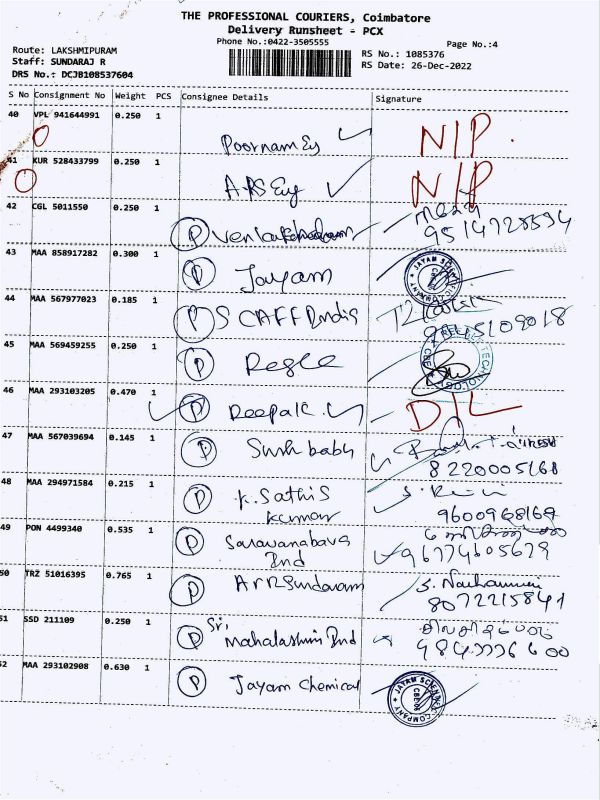 THE PROFESSIONAL COURIERS, Coimbatore
Delivery Runsheet - PCX
Phone No.:0422-3505555
Page No.:4
Route: LAKSHMIPURAM
Staff: SUNDARAJ R
DRS No.: DCJB108537604
RS No.: 1085376
RS Date: 26-Dec-2022
S No Consignment No Weight PCS Consignee Details Signature
40 VPL 941644991 0.250 1
Poornam Ey N/P.
41 KUR 528433799 0.250 1
ARS Ey N/P
42 CGL 5011550 0.250 1
P
9514728594
43 MAA 858917282 0.300 1
P Jayam JAYAM SCIEN COMPANY CBE
44 MAA 567977023 0.185 1
P S CAFF India
5109018
45 MAA 569459255 0.250 1
P TECHNOLOGY CBE
46 MAA 293103205 0.470 1
P Deepak D/L
47 MAA 567039694 0.145 1
P baby
8220005168
48 MAA 294971584 0.215 1
P K. Sathis
Kumar 9600968169
49 PON 4499340 0.535 1
P Saravanabava
Ind
50 TRZ 51016395 0.765 1
P ARRSundaram S.
8072215841
51 SSD 211109 0.250 1
P Sri,
Mahalashmi Ind
52 MAA 293102908 0.630 1
P Jayam Chemical JAYAM SCIEN COMPANY CBE